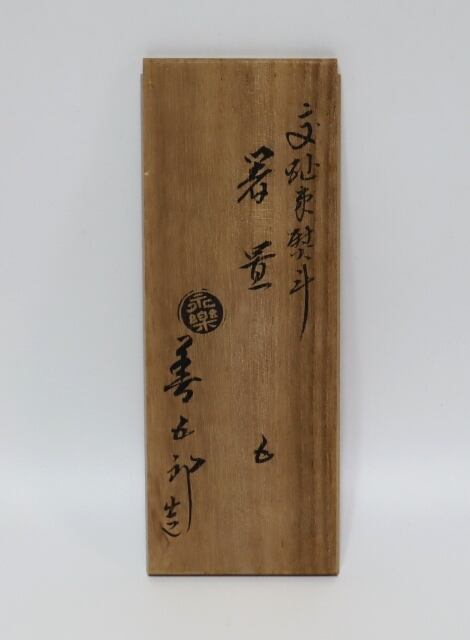 交趾束熨斗
箸置
五
永樂
善五郎造